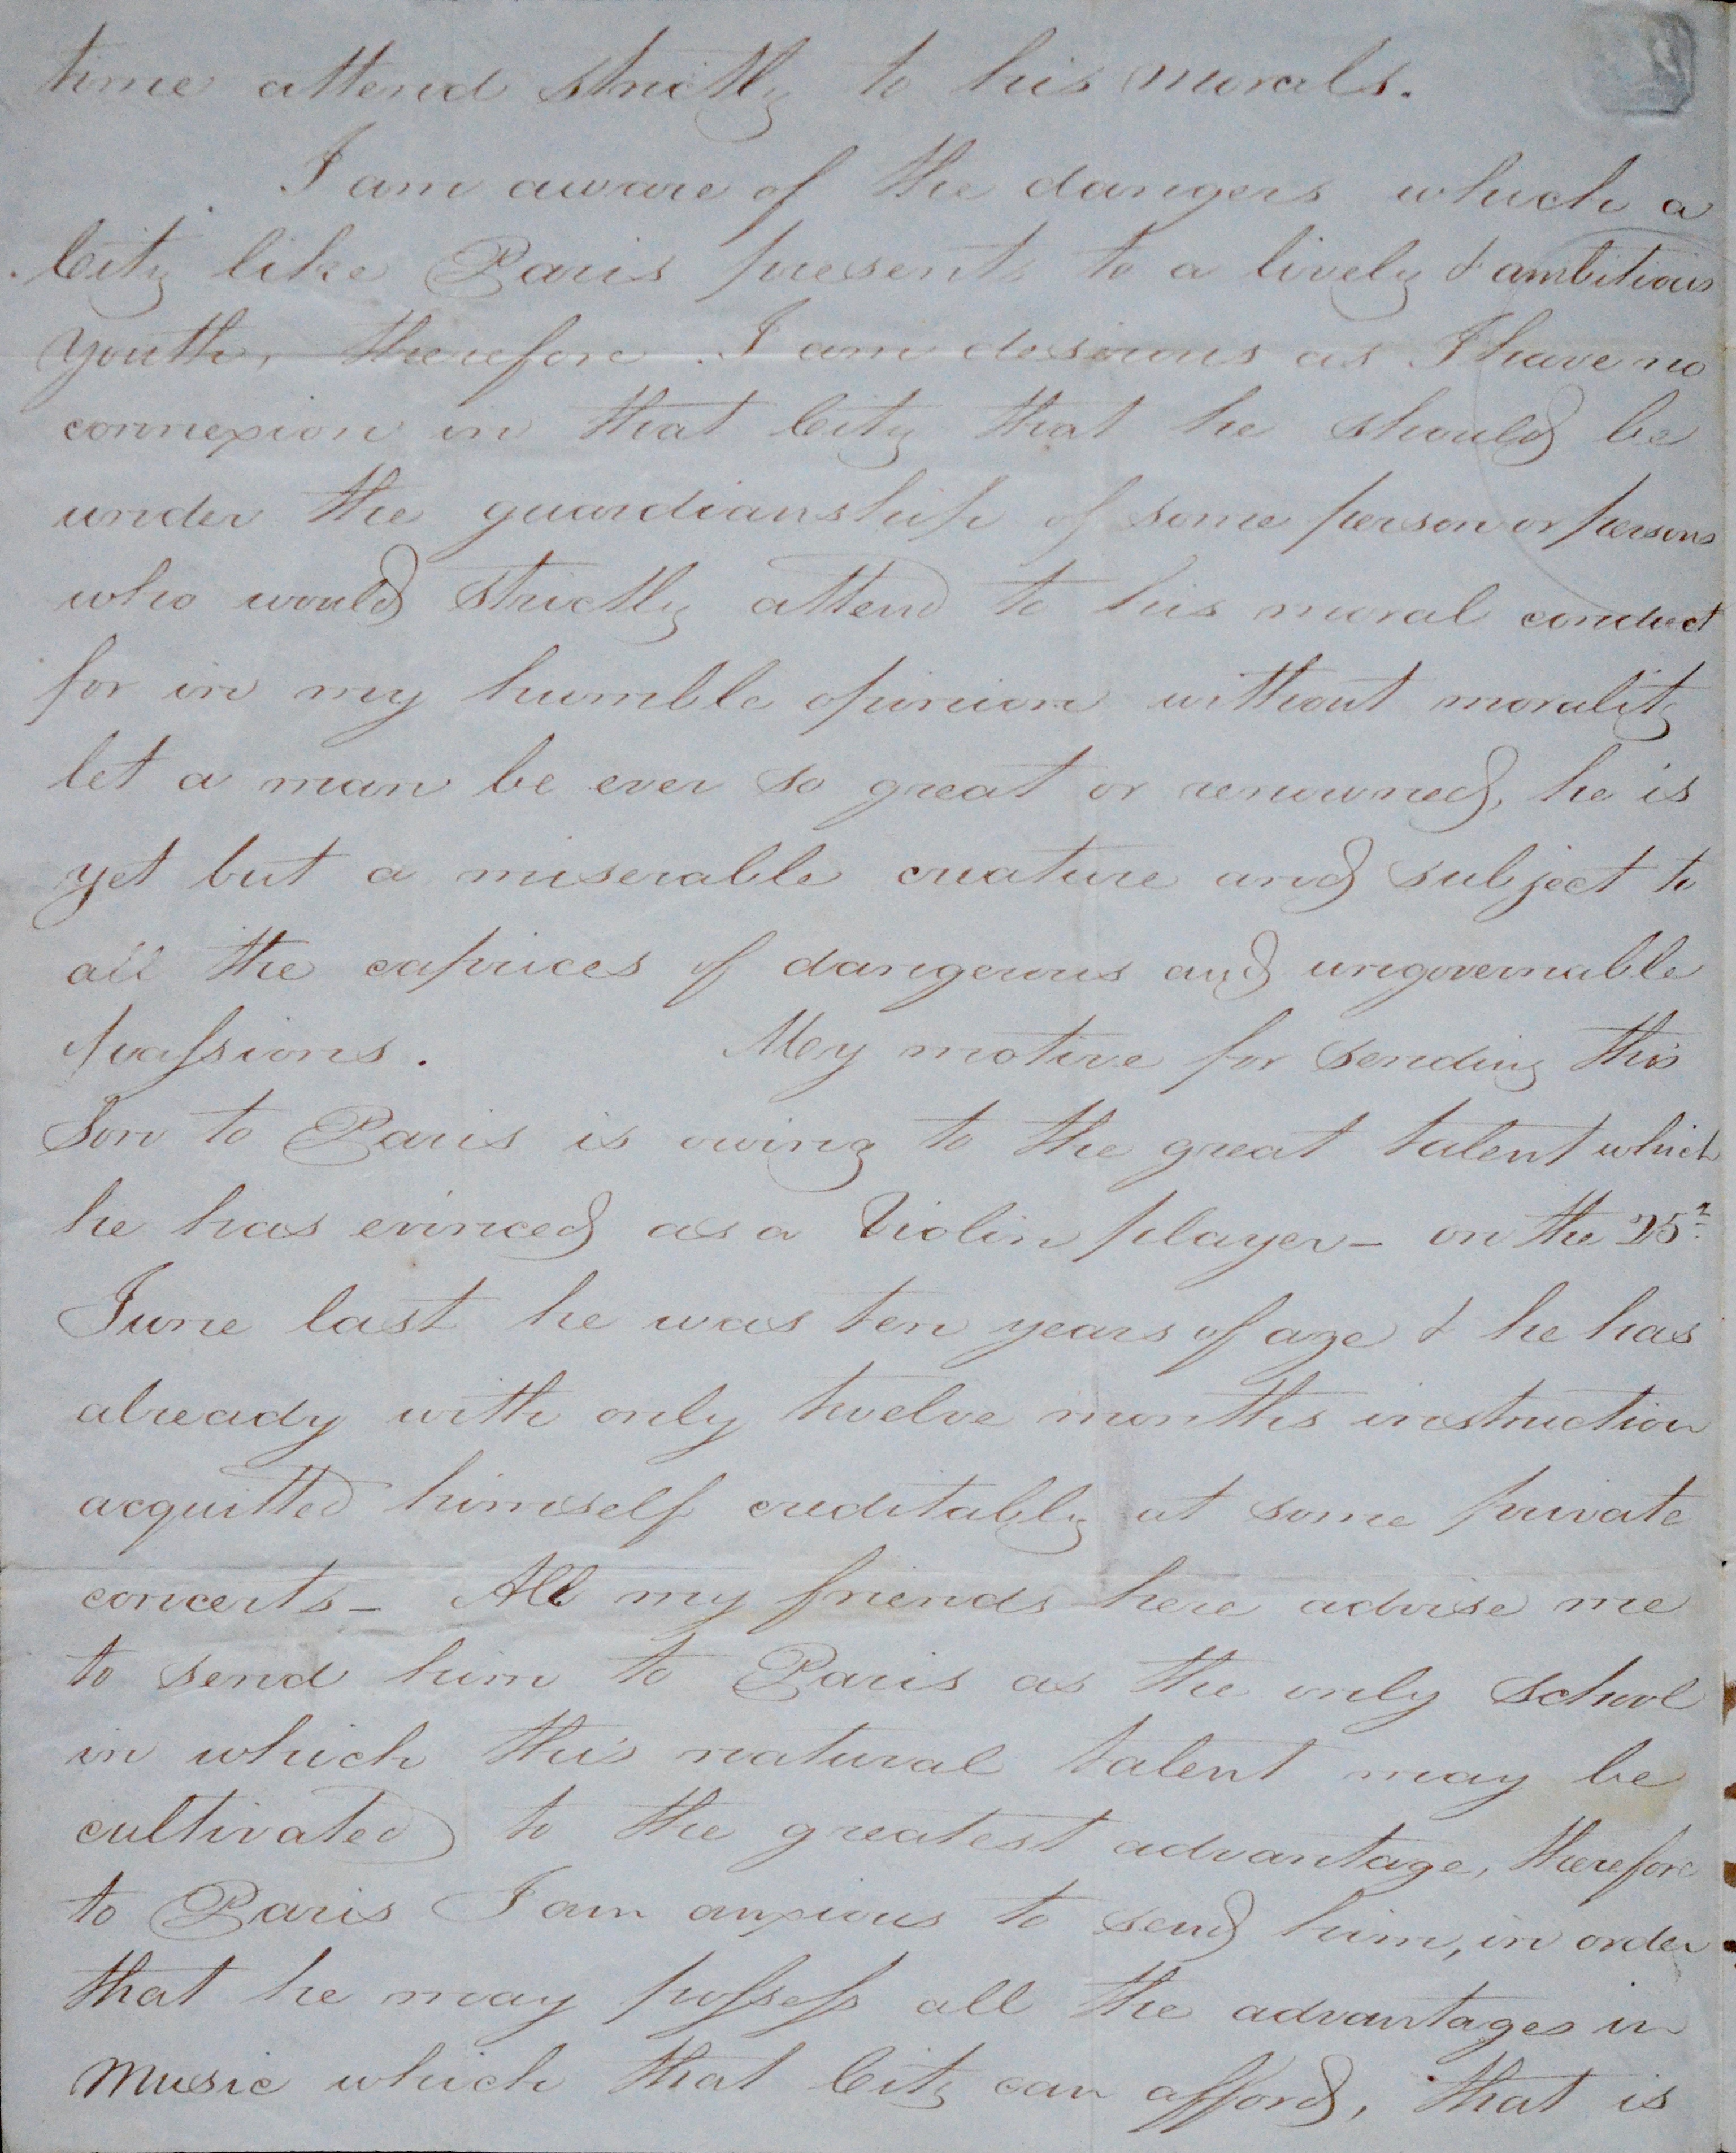 time attend strictly to his morals.
I am aware of the dangers which a
City like Paris presents to a lively & ambitious
youth, therefore I am desirous as I have no
connexion in that City that he should be
under the guardianship of some person or persons
who would strictly attend to his moral conduct
for in my humble opinion without morality
let a man be ever so great or renowned, he is
yet but a miserable creature and subject to
all the caprices of dangerous and ungovernable
passions. My motive for sending this
Son to Paris is owing to the great talent which
he has evinced as a Violin player – on the 25th
June last he was ten years of age & he has
already with only twelve months instruction
acquitted himself creditably at some private
concerts – All my friends here advise me
to send him to Paris as the only school
in which this natural talent may be
cultivated to the greatest advantage, therefore
to Paris I am anxious to send him, in order
that he may possess all the advantages in
Music which that City can afford, that is